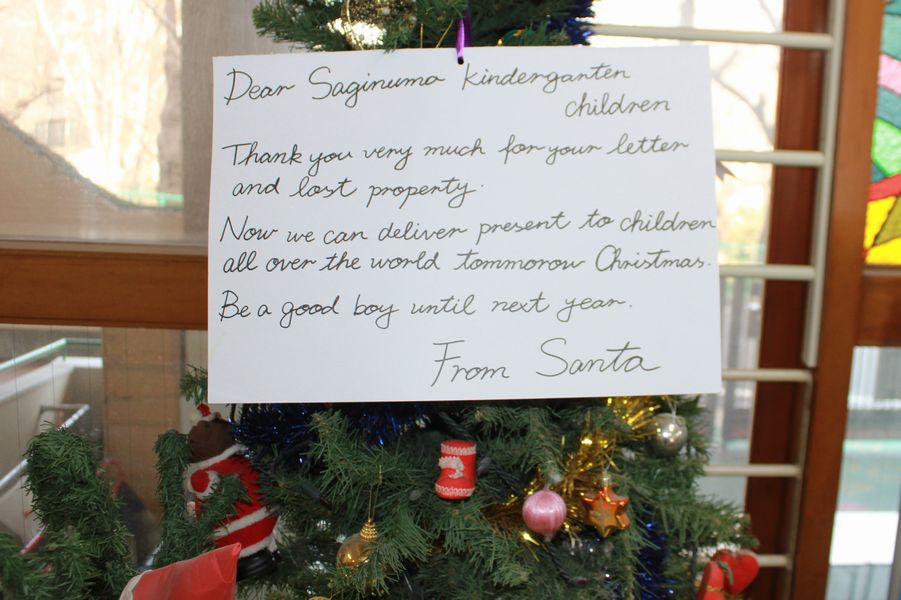 Dear Saginuma kindergarten
children
Thank you very much for your letter
and lost property.
Now we can deliver present to children
all over the world tommorow Christmas.
Be a good boy until next year.
From Santa